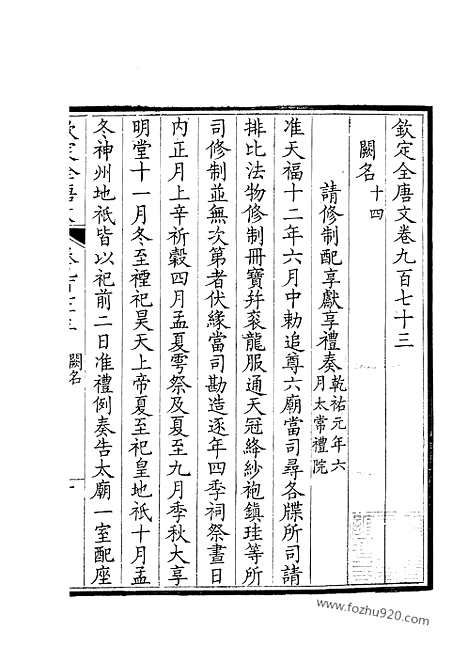 欽定全唐文卷九百七十三
闕名十四
請修制配享獻享禮奏乾祐元年六月太常禮院
准天福十二年六月中勅追尊六廟當司尋各牒所司請
排比法物修制冊寶幷衮龍服通天冠絳紗袍鎮珪等所
司修制並無次第者伏緣當司勘造逐年四季祠祭畫日
内正月上辛祈穀四月孟夏雩祭及夏至九月季秋大享
明堂十一月冬至禋祀昊天上帝夏至祀皇地祇十月孟
冬神州地祇皆以祀前二日准禮例奏告太廟一室配座
闕名
www.fozhu920.com